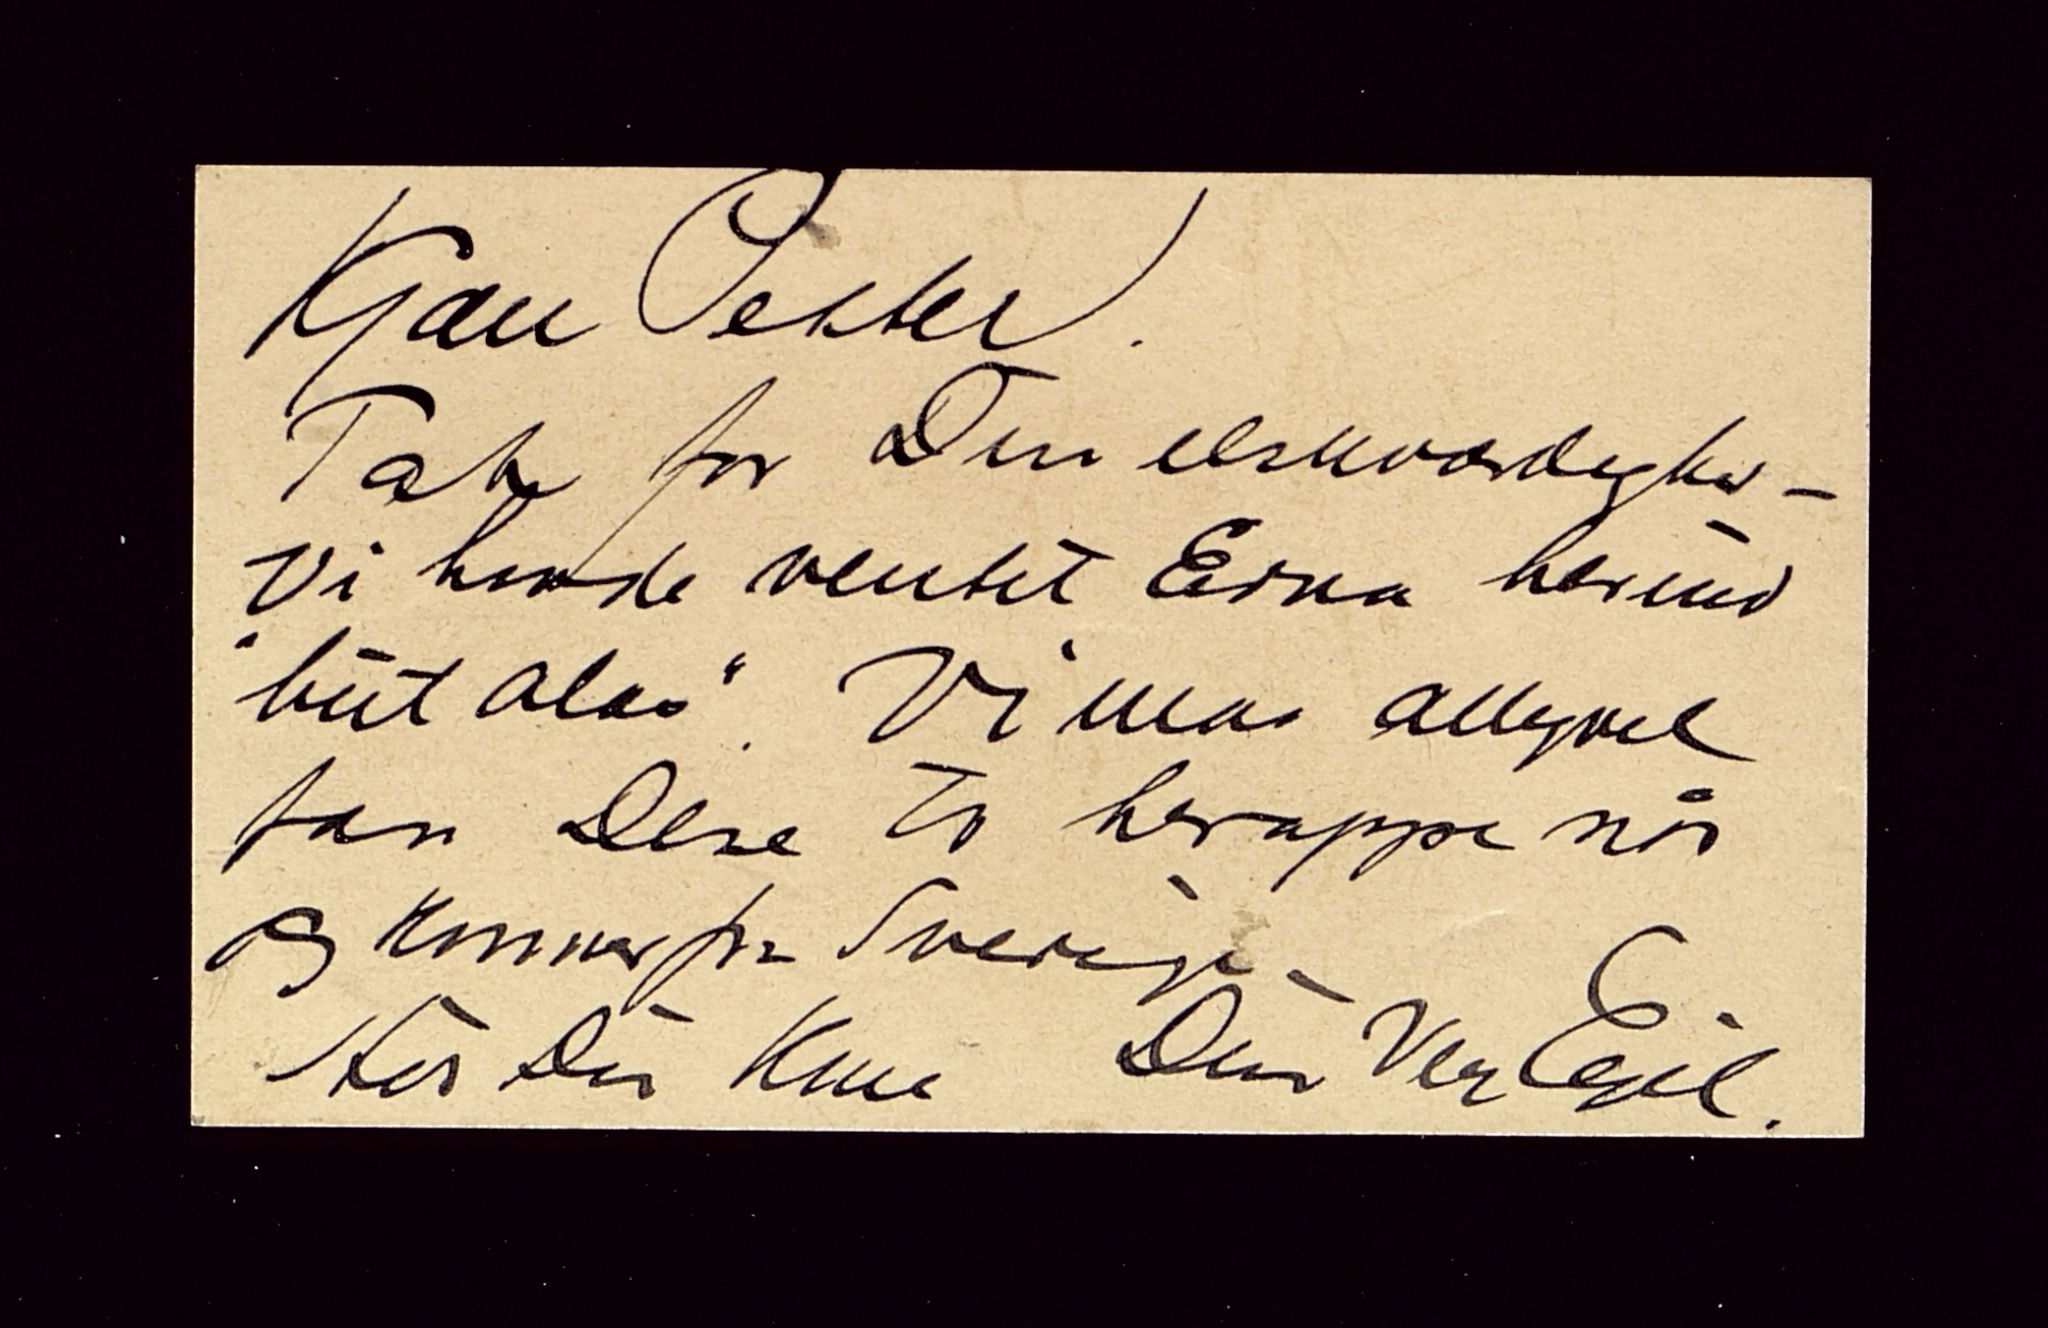 Kjære Petter.
Tak for Din elskværdighed –
Vi havde ventet Erna herind
"but alas". Vi maa alligvel
faa Dere to heroppe når
jeg kommer fra Sverige –
Hør Du Din Ven Egil.